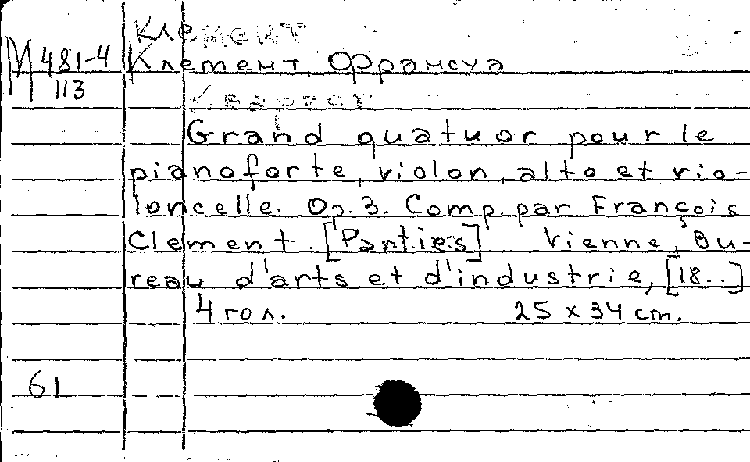 Клемент
М 481-4 Клемент, Франсуа
113
Квартет
Grand quatuor pour le
pianoforte, violon, alto et vio-
loncelle. Op. 3. Comp. par François
Clement. [Parties] Vienne, Bu-
reau d'arts et d'industrie, [18..]
4 гол. 25 x 34 cm.
61